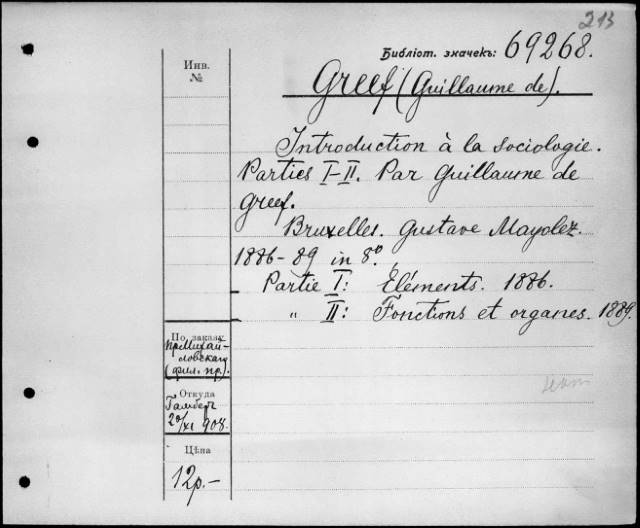 213
Библіот. значекъ: 69268.
Инв.
№
Greef (Guillaume de).
Introduction à la sociologie.
Parties I-II. Par Guillaume de
Greef.
Bruxelles. Gustave Mayolez.
1886-89 in 8º.
Partie I: Éléments. 1886.
" II: Fonctions et organes. 1889.
По заказу
пр. Михай-
ловскаго
(фил. пр.).
Откуда
Гамберъ
20/XI 908.
Цѣна
12р.-